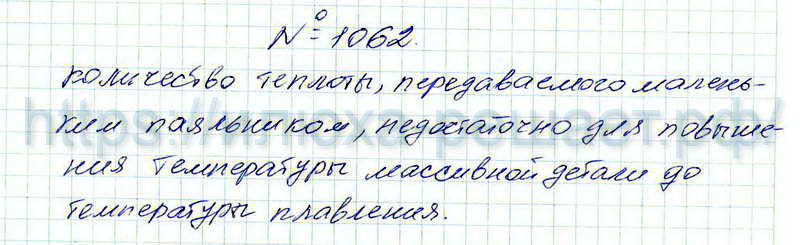 № 1062.
количество теплоты, передаваемого малень-
ким паяльником, недостаточно для повыше-
ния температуры массивной детали до
температуры плавления.